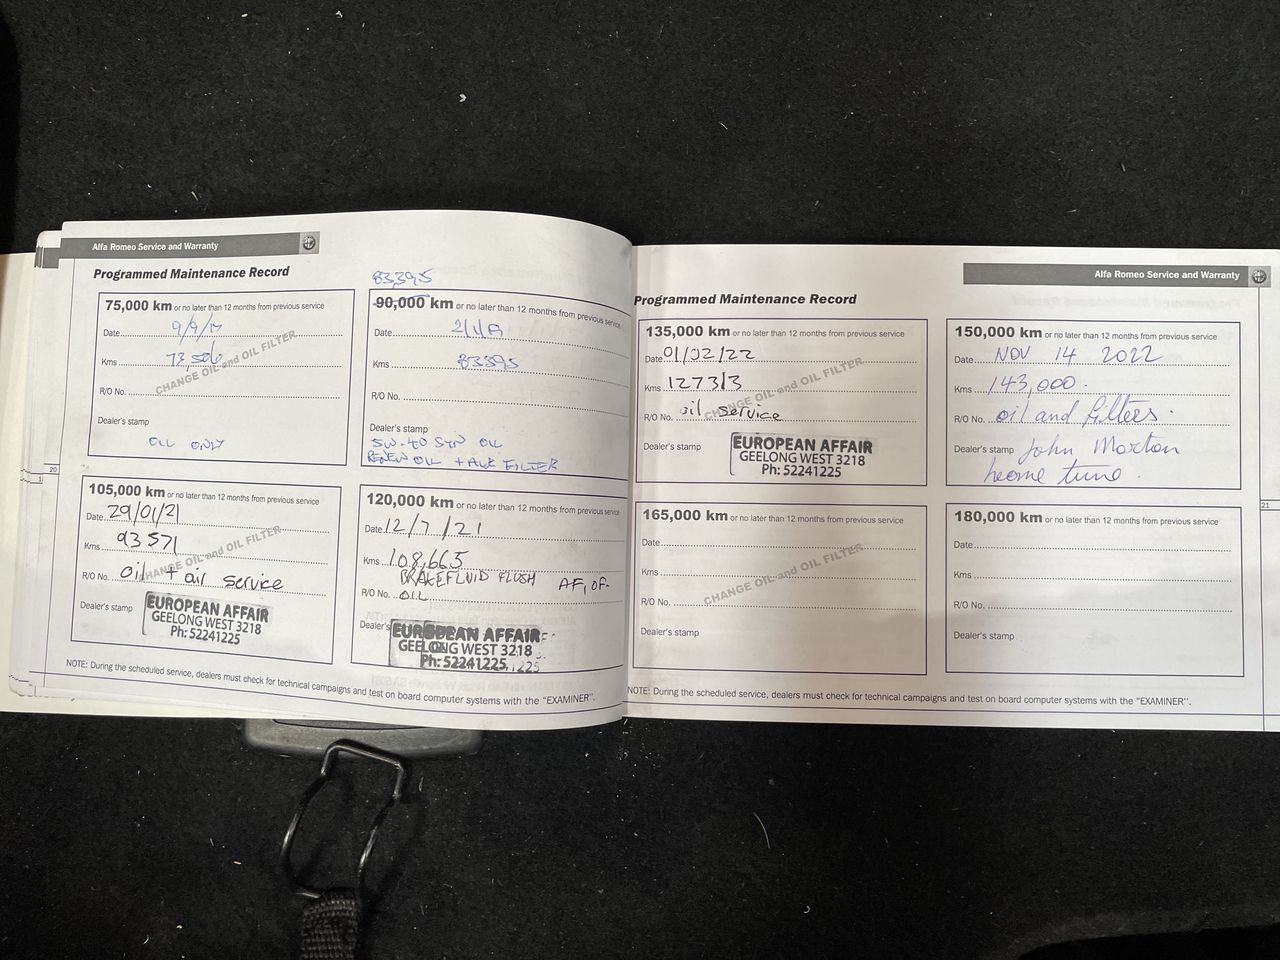 Alfa Romeo Service and Warranty
Programmed Maintenance Record
83,395
75,000 km or no later than 12 months from previous service
Date 9/9/17
Kms 73,506
CHANGE OIL and OIL FILTER
R/O No.
Dealer's stamp
OIL ONLY
90,000 km or no later than 12 months from previous service
Date 2/1/19
Kms 83395
R/O No.
Dealer's stamp
5W-40 SYN OIL
RENEW OIL + AIR FILTER
105,000 km or no later than 12 months from previous service
Date 29/01/21
Kms 93571
CHANGE OIL and OIL FILTER
R/O No. oil + air service
Dealer's stamp
EUROPEAN AFFAIR
GEELONG WEST 3218
Ph: 52241225
120,000 km or no later than 12 months from previous service
Date 12/7/21
Kms 108,665
BRAKEFLUID FLUSH AF, OF.
R/O No. OIL
Dealer's
EUROPEAN AFFAIR
GEELONG WEST 3218
Ph: 52241225
NOTE: During the scheduled service, dealers must check for technical campaigns and test on board computer systems with the "EXAMINER".
20
Alfa Romeo Service and Warranty
Programmed Maintenance Record
135,000 km or no later than 12 months from previous service
Date 01/02/22
Kms 127313
CHANGE OIL and OIL FILTER
R/O No. oil service
Dealer's stamp
EUROPEAN AFFAIR
GEELONG WEST 3218
Ph: 52241225
150,000 km or no later than 12 months from previous service
Date NOV 14 2022
Kms 143,000.
R/O No. oil and filters.
Dealer's stamp John Morton
home tune.
165,000 km or no later than 12 months from previous service
Date
Kms
CHANGE OIL and OIL FILTER
R/O No.
Dealer's stamp
180,000 km or no later than 12 months from previous service
Date
Kms
R/O No.
Dealer's stamp
NOTE: During the scheduled service, dealers must check for technical campaigns and test on board computer systems with the "EXAMINER".
21